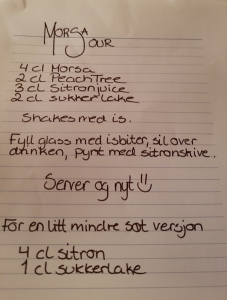 Morsa
Sour
4 cl Morsa
2 cl PeachTree
3 cl Sitronjuice
2 cl sukkerlake
Shakes med is.
Fyll glass med isbiter, sil over
drinken, pynt med sitronskive.
Server og nyt
For en litt mindre søt versjon
4 cl sitron
1 cl sukkerlake